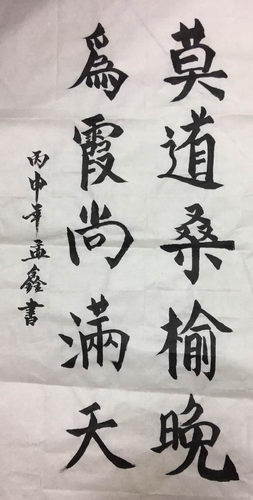 莫道桑榆晚
爲霞尚滿天
丙申年孟鑫書